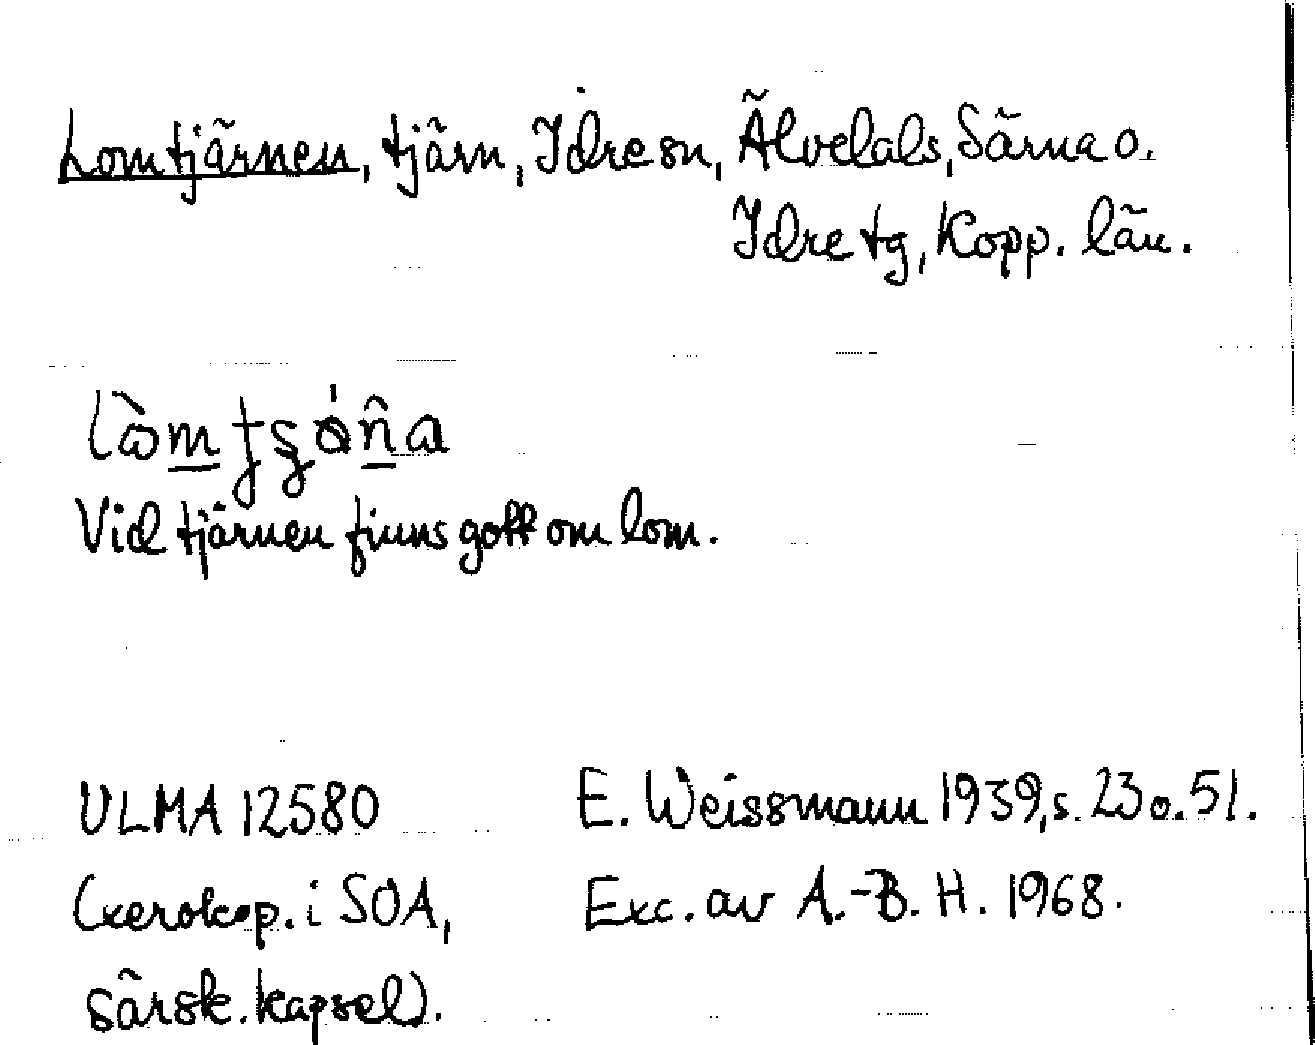 Lomtjärnen, tjärn, Idre sn, Älvdals, Särna o.
Idre tg, Kopp. län.
Vid tjärnen finns gott om lom.
ULMA 12580
E. Weissmann 1939, s. 23 o. 51.
(xerokop. i SOA,
Exc. av A.-B. H. 1968.
särsk. kapsel).